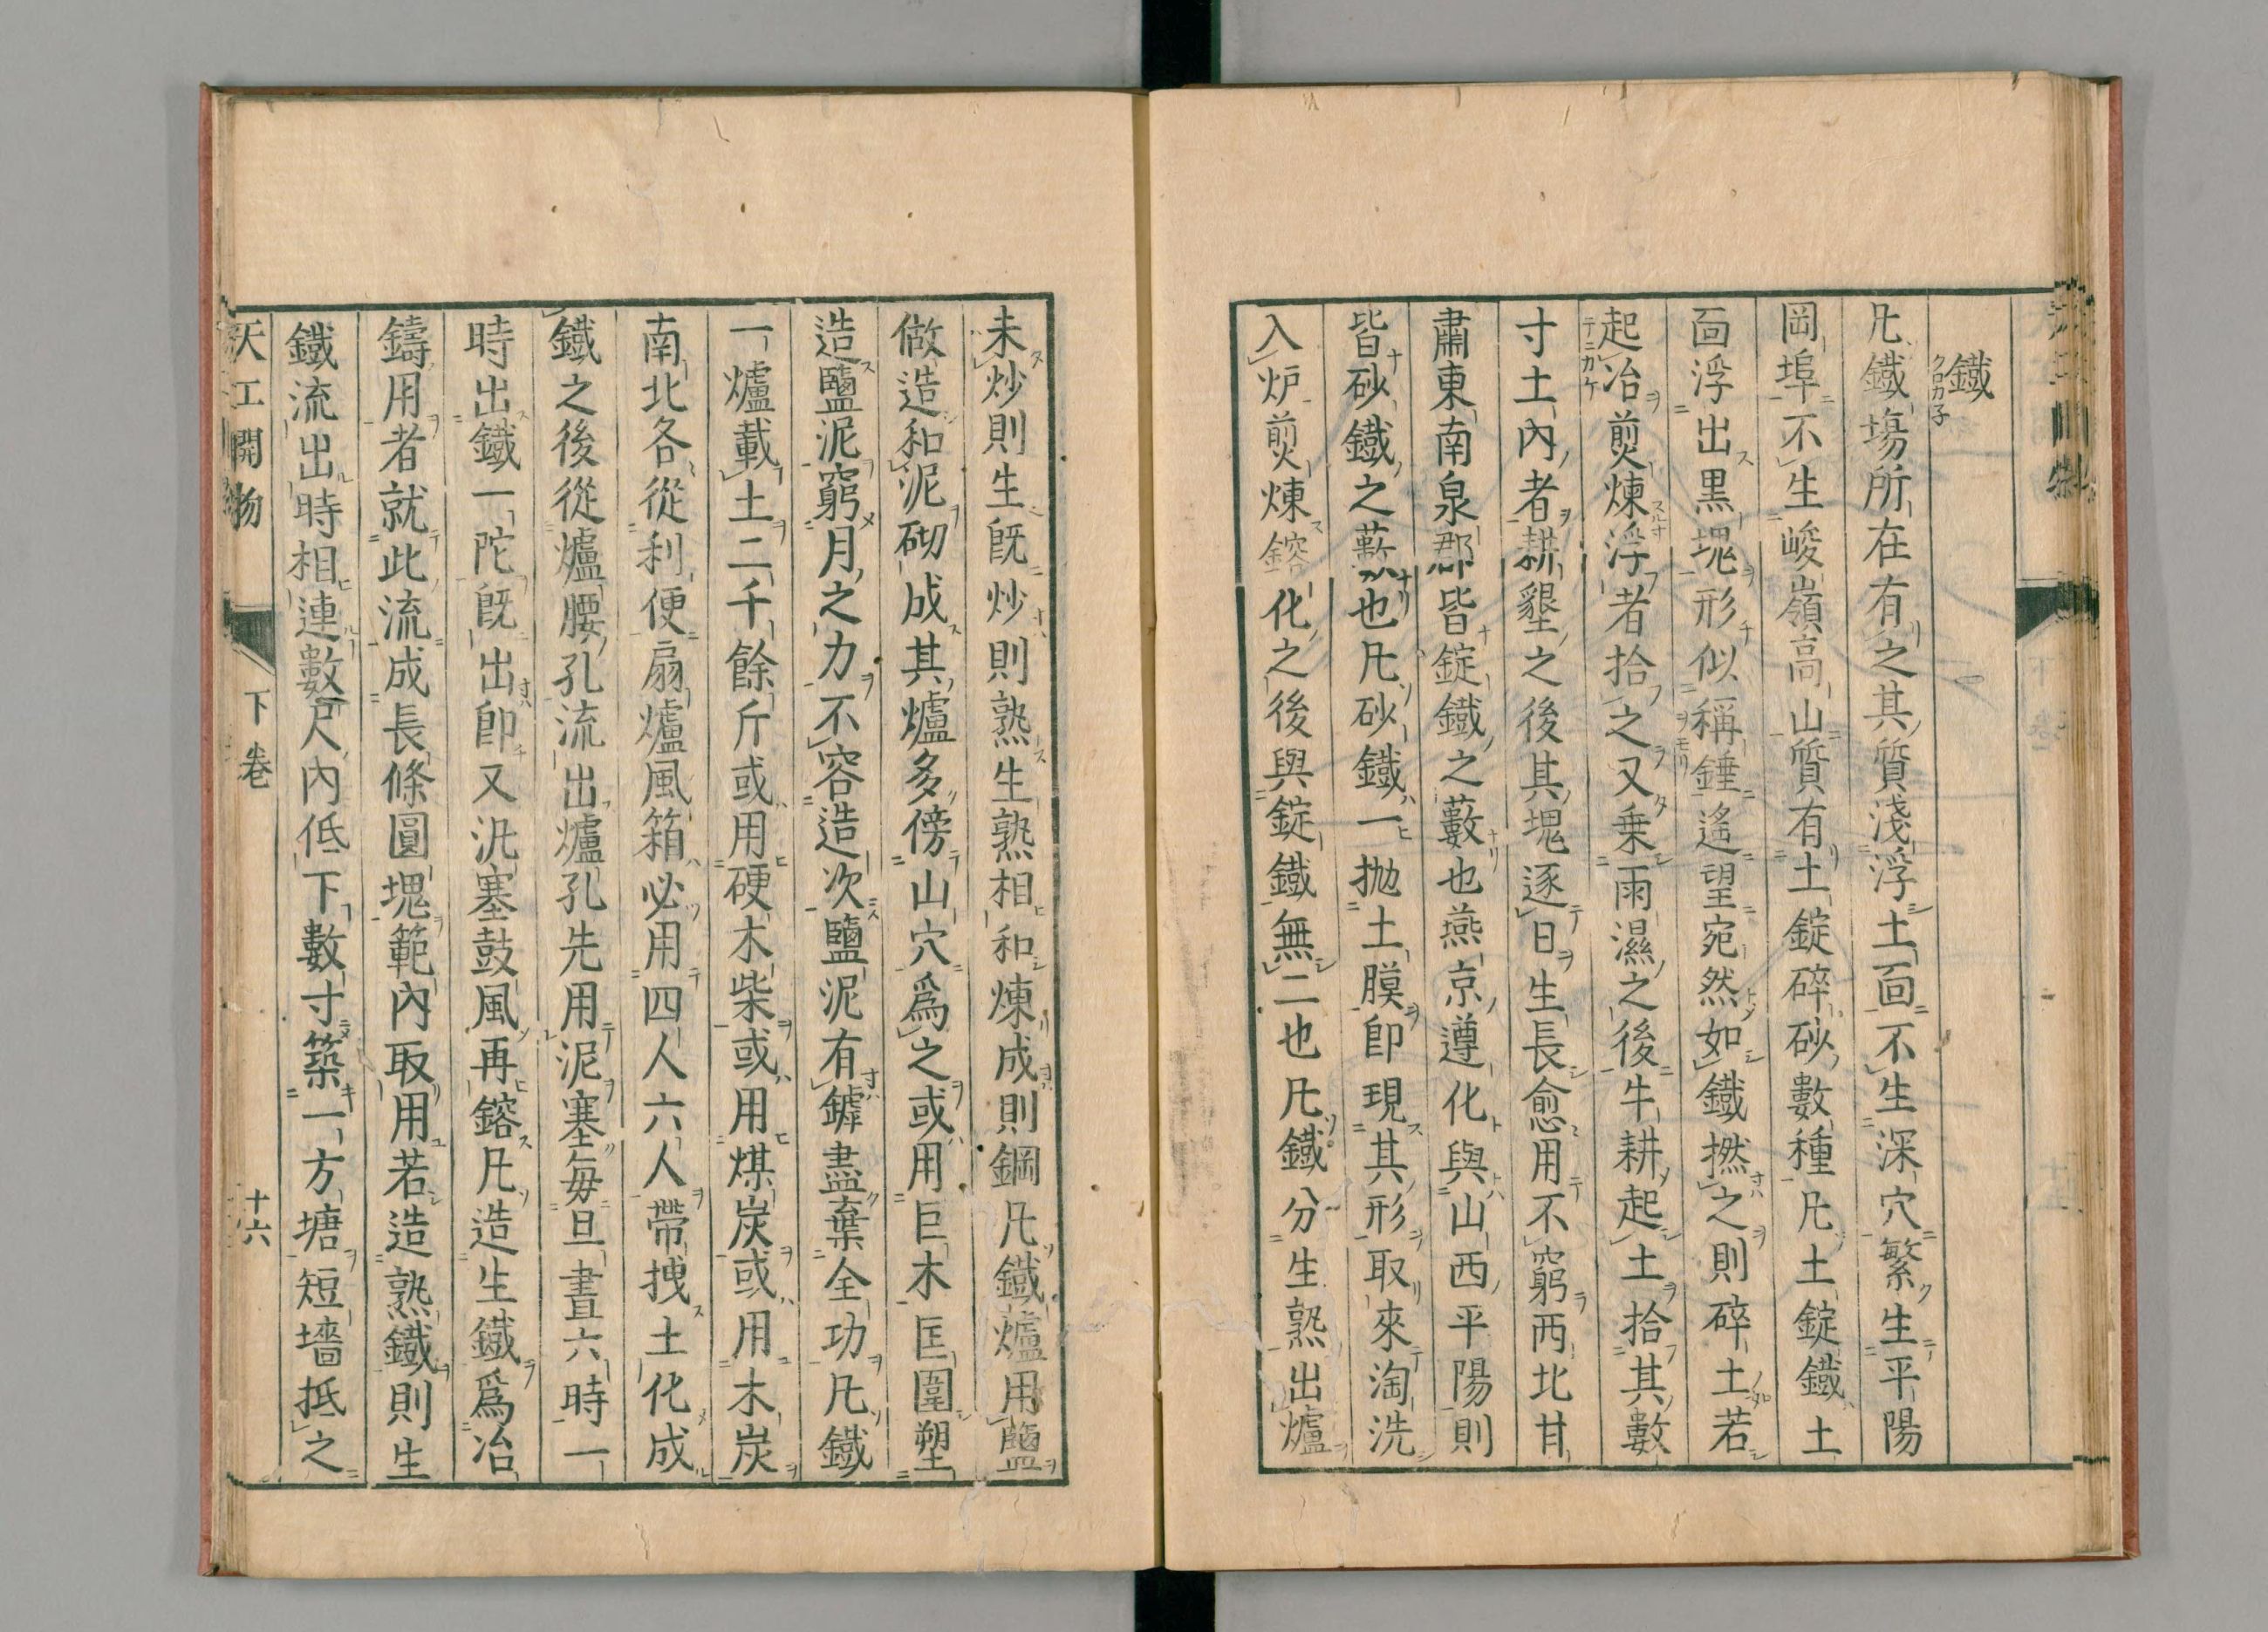 鐵
クロカ子
凡鐵塲所在有之其質淺浮土面不生深穴繁生平陽
岡埠不生峻嶺高山質有土錠碎砂數種凡土錠鐵土
面浮出黒塊形似稱錘遙望宛然如鐵撚之則碎土若
起冶煎煉浮者拾之又乗雨濕之後牛耕起土拾其數
寸土內者耕墾之後其塊逐日生長愈用不窮西北甘
肅東南泉郡皆錠鐵之藪也燕京遵化與山西平陽則
皆砂鐵之藪也凡砂鐵一抛土膜卽現其形取來淘洗
入炉煎煉鎔化之後與錠鐵無二也凡鐵分生熟出爐
未炒則生旣炒則熟生熟相和煉成則鋼凡鐵爐用鹽
做造和泥砌成其爐多傍山穴爲之或用巨木匡圍塑
造鹽泥窮月之力不容造次鹽泥有罅盡棄全功凡鐵
一爐載土二千餘斤或用硬木柴或用煤炭或用木炭
南北各從利便扇爐風箱必用四人六人帶拽土化成
鐵之後從爐腰孔流出爐孔先用泥塞每旦晝六時一
時出鐵一陀旣出卽叉汎塞鼓風再鎔凡造生鐵爲冶
鑄用者就此流成長條圓塊範內取用若造熟鐵則生
鐵流出時相連數尺內低下數寸築一方塘短墻抵之
天工開物 下卷 十六